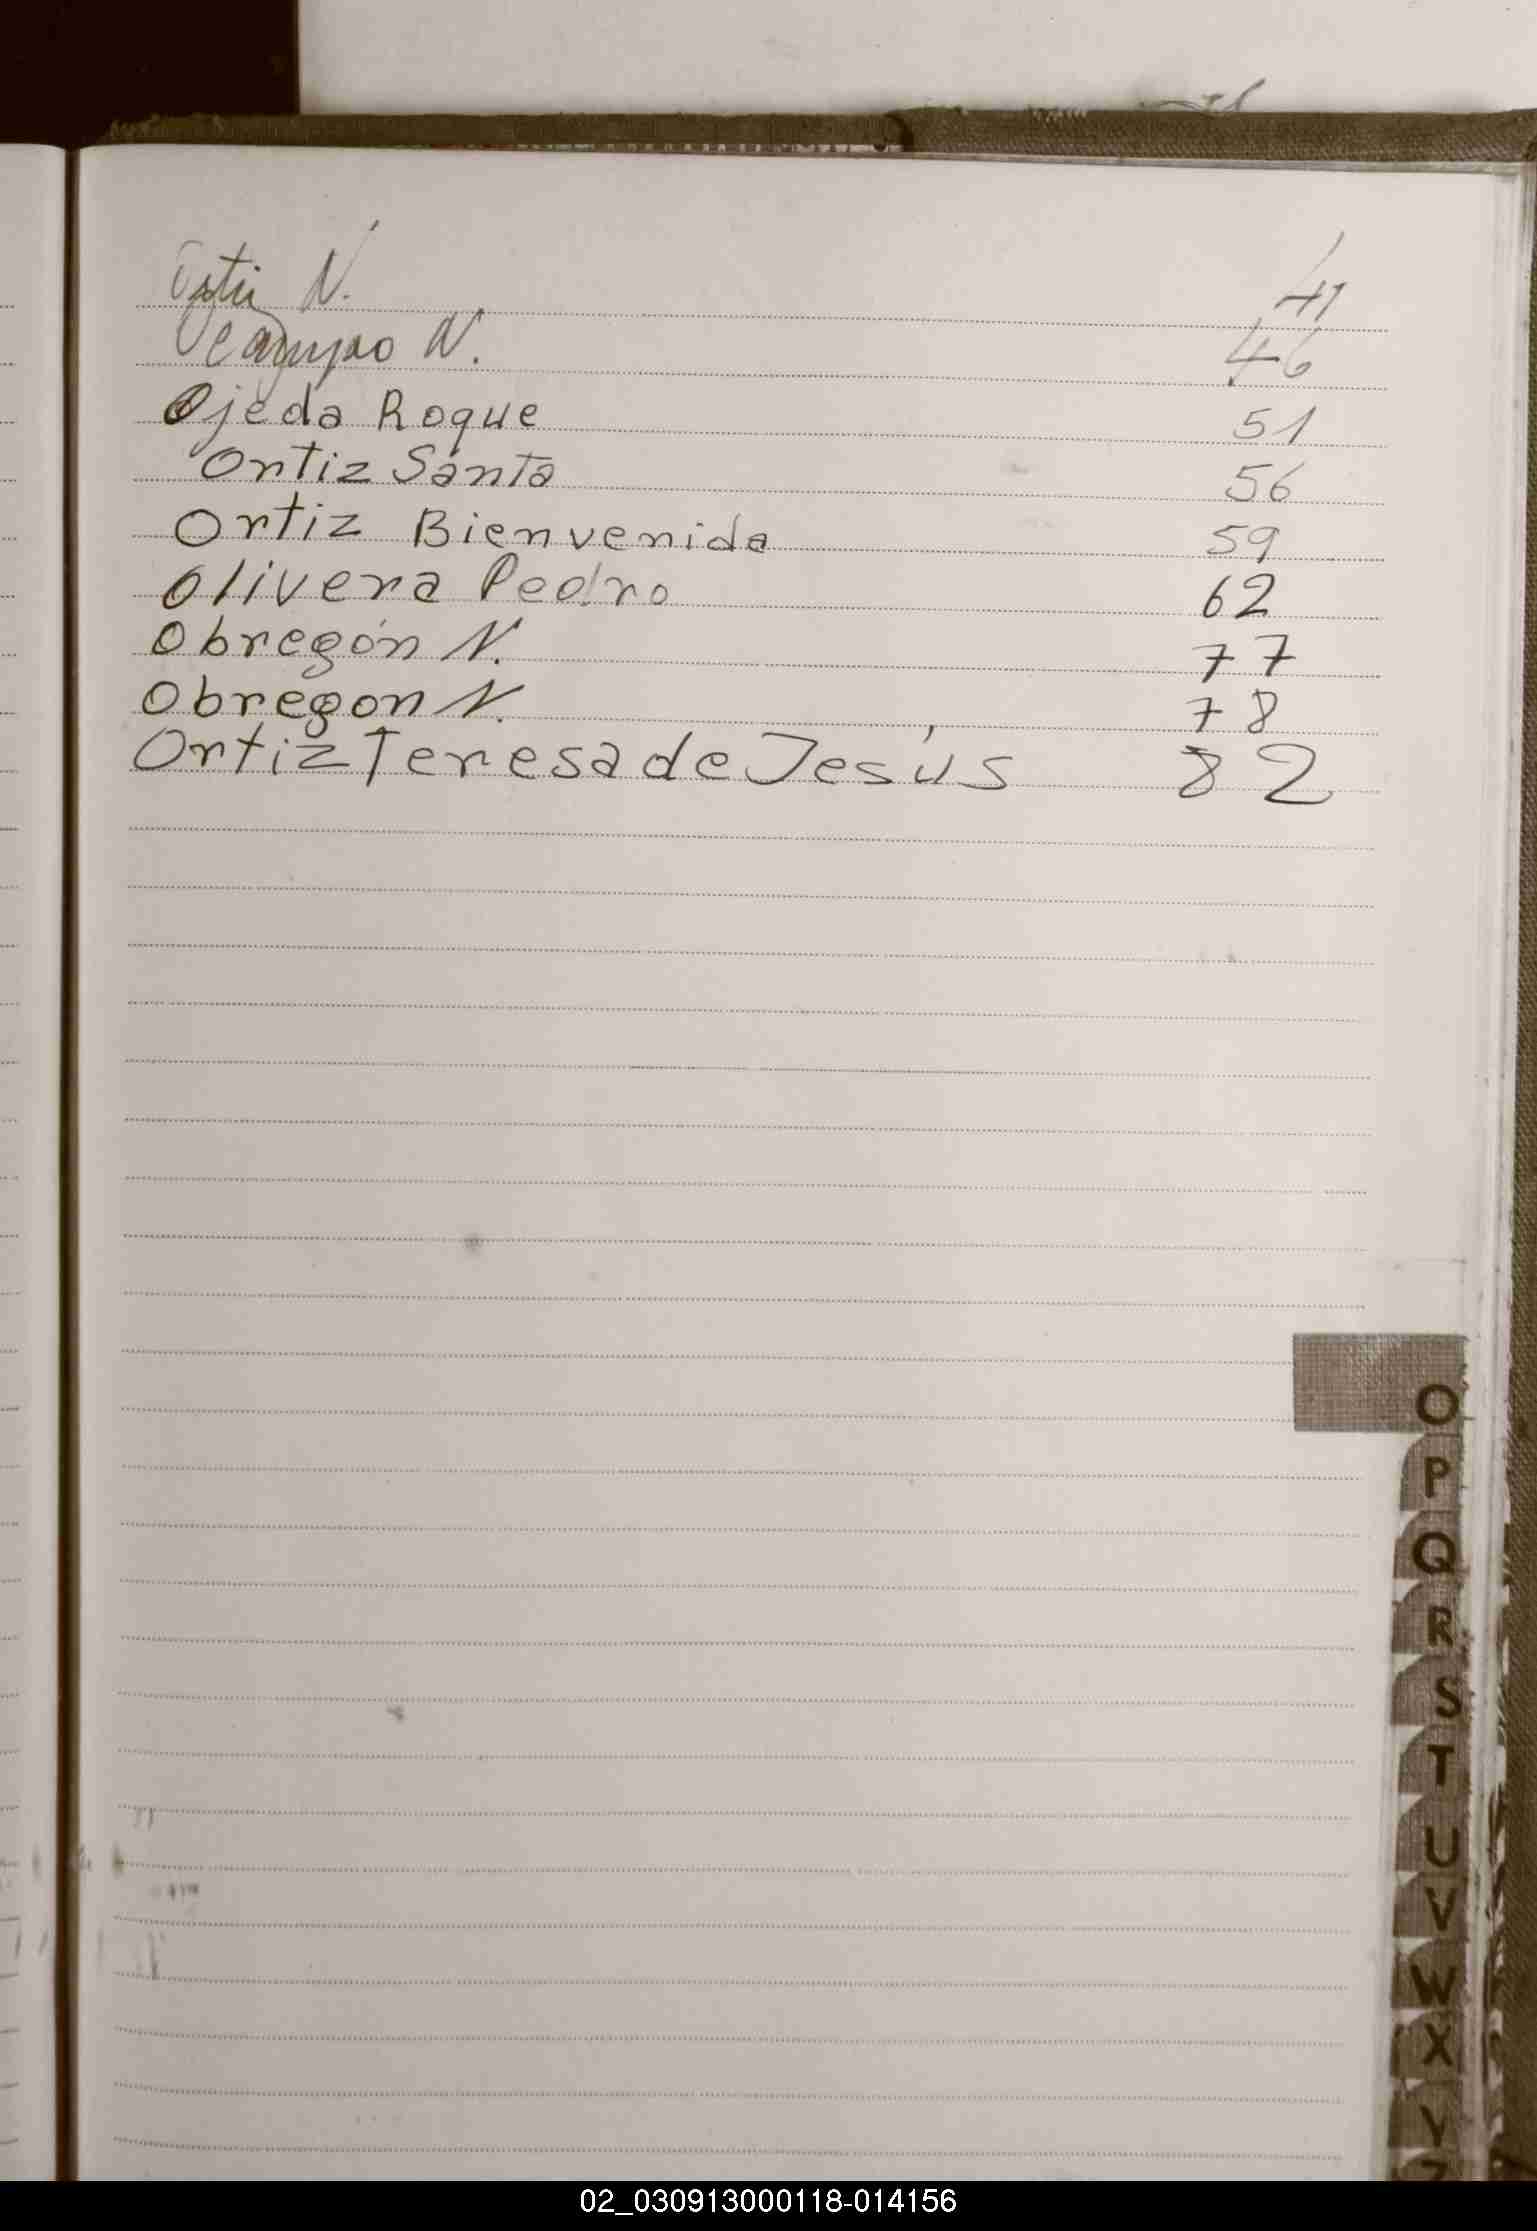 Ortiz N. 41
Ocampo N. 46
Ojeda Roque 51
Ortiz Santa 56
Ortiz Bienvenida 59
Olivera Pedro 62
Obregón N. 77
Obregon N. 78
Ortiz Teresa de Jesús 82
O
P
Q
R
S
T
U
V
W
X
Y
Z
02_030913000118-014156